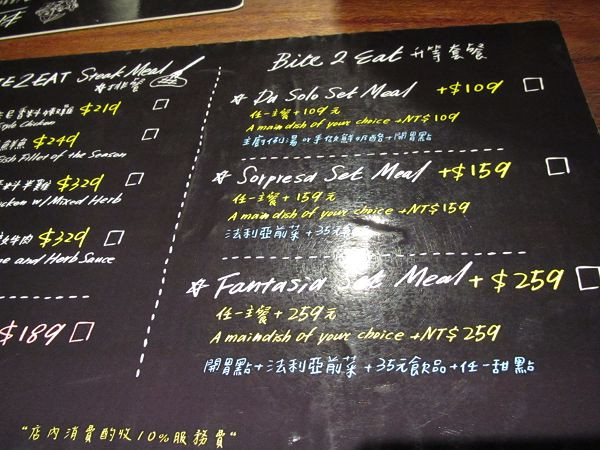 2EAT Steak Meal
排餐
$219
Style Chicken
$249
Fish Fillet of the Season
$329
Chicken w/ Mixed Herb
$329
and Herb Sauce
$189
Bite 2 Eat 升等套餐
Da Solo Set Meal +$109
任一主餐+109元
A main dish of your choice +NT$109
主廚例湯or手做鮮奶酪+開胃點
Sorpresa Set Meal +$159
任一主餐+159元
A main dish of your choice +NT$159
法利亞前菜+35元
Fantasia Set Meal +$259
任一主餐+259元
A main dish of your choice +NT$259
開胃點+法利亞前菜+35元飲品+任一甜點
"店內消費酌收10%服務費"